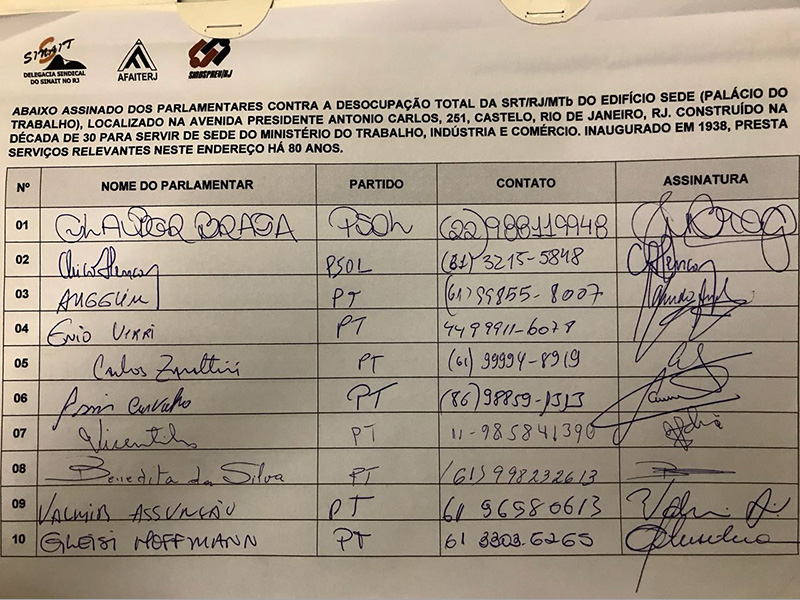 SINAIT
DELEGACIA SINDICAL
DO SINAIT NO RJ
AFAITERJ
SINDSPREV/RJ
ABAIXO ASSINADO DOS PARLAMENTARES CONTRA A DESOCUPAÇÃO TOTAL DA SRT/RJ/MTb DO EDIFÍCIO SEDE (PALÁCIO DO
TRABALHO), LOCALIZADO NA AVENIDA PRESIDENTE ANTONIO CARLOS, 251, CASTELO, RIO DE JANEIRO, RJ. CONSTRUÍDO NA
DÉCADA DE 30 PARA SERVIR DE SEDE DO MINISTÉRIO DO TRABALHO, INDÚSTRIA E COMÉRCIO. INAUGURADO EM 1938, PRESTA
SERVIÇOS RELEVANTES NESTE ENDEREÇO HÁ 80 ANOS.
Nº NOME DO PARLAMENTAR PARTIDO CONTATO ASSINATURA
01 GLAUBER BRAGA PSOL (22) 988119948
02 Chico Alencar PSOL (61) 3215-5848
03 PT (61) 99855-8007
04 ENIO VERRI PT 44 99911-6078
05 Carlos Zarattini PT (61) 99994-8919
06 Assis Carvalho PT (86) 98859-1313
07 Vicentinho PT 11-985841390
08 Benedita da Silva PT (61) 998232613
09 VALMIR ASSUNÇÃO PT 61 96580613
10 GLEISI HOFFMANN PT 61 3303.6265